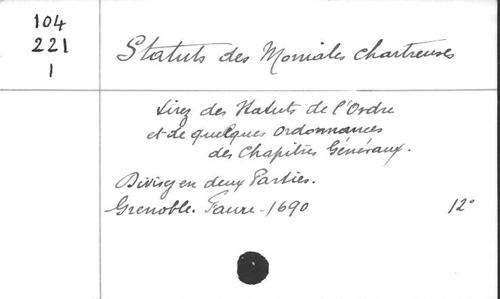 104
221
1
Statuts des Moniales Chartreuses
tirez des Statuts de l'Ordre
et de quelques ordonnances
des Chapitres Généraux.
Divisez en deux Parties.
Grenoble. Faure - 1690 12°